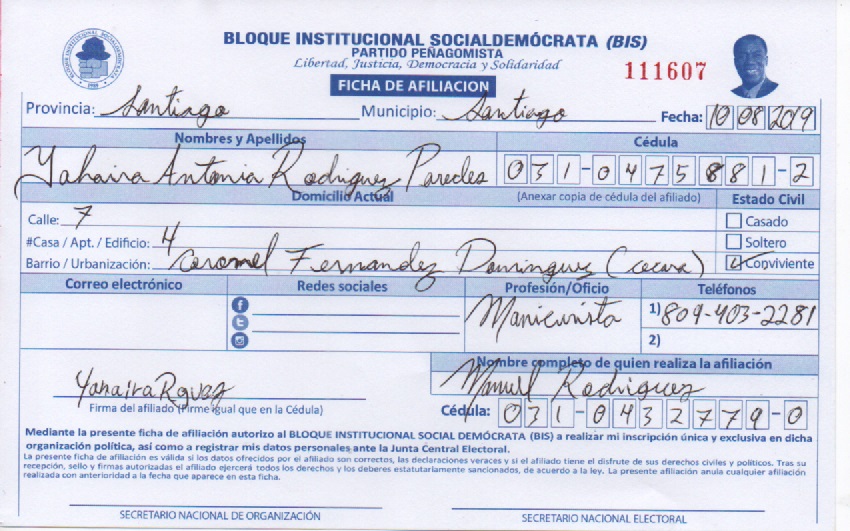 BLOQUE INSTITUCIONAL SOCIALDEMÓCRATA (BIS)
PARTIDO PEÑAGOMISTA
Libertad, Justicia, Democracia y Solidaridad
111607
FICHA DE AFILIACION
Provincia: Santiago Municipio: Santiago Fecha: 10 08 2019
Nombres y Apellidos Cédula
Yahaira Antonia Rodriguez Paredes 031-0475881-2
Domicilio Actual (Anexar copia de cédula del afiliado) Estado Civil
Calle: 7 Casado
#Casa / Apt. / Edificio: 4 Soltero
Barrio / Urbanización: Coronel Fernandez Dominguez (cecara) Conviviente
Correo electrónico Redes sociales Profesión/Oficio Teléfonos
Manicurista 1) 809-403-2281
2)
Nombre completo de quien realiza la afiliación
Yahaira Rguez Manuel Rodriguez
Firma del afiliado (Firme igual que en la Cédula) Cédula: 031-0432779-0
Mediante la presente ficha de afiliación autorizo al BLOQUE INSTITUCIONAL SOCIAL DEMÓCRATA (BIS) a realizar mi inscripción única y exclusiva en dicha
organización política, así como a registrar mis datos personales ante la Junta Central Electoral.
La presente ficha de afiliación es válida si los datos ofrecidos por el afiliado son correctos, las declaraciones veraces y si el afiliado tiene el disfrute de sus derechos civiles y políticos. Tras su
recepción, sello y firmas autorizadas el afiliado ejercerá todos los derechos y los deberes estatutariamente sancionados, de acuerdo a la ley. La presente afiliación anula cualquier afiliación
realizada con anterioridad a la fecha que aparece en esta ficha.
SECRETARIO NACIONAL DE ORGANIZACIÓN SECRETARIO NACIONAL ELECTORAL